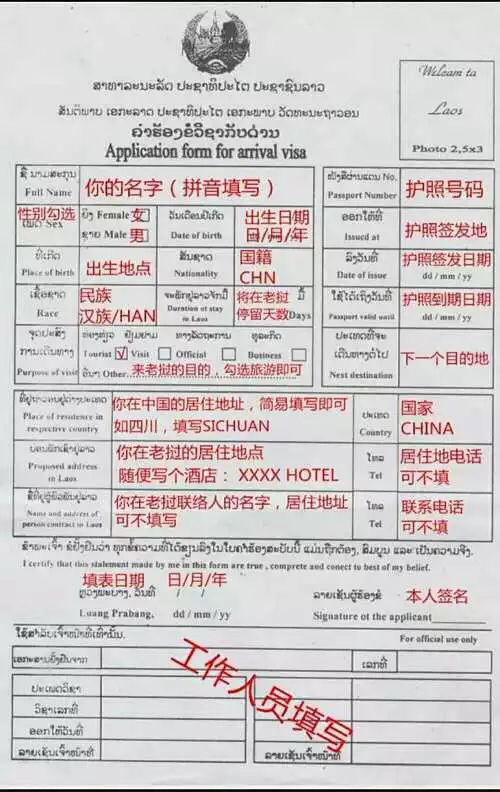 Welcam ta
Laos
Photo 2,5x3
ສາທາລະນະລັດ ປະຊາທິປະໄຕ ປະຊາຊົນລາວ
ສັນຕິພາບ ເອກະລາດ ປະຊາທິປະໄຕ ເອກະພາບ ວັດທະນະຖາວອນ
ຄຳຮ້ອງຂໍວີຊາກັບດ່ານ
Application form for arrival visa
ຊື່ ນາມສະກຸນ
Full Name
你的名字（拼音填写）
ໜັງສືຜ່ານແດນ No.
Passport Number
护照号码
性别勾选
ເພດ Sex
ຍິງ Female 女
ຊາຍ Male 男
ວັນເດືອນປີເກີດ
Date of birth
出生日期
日/月/年
ອອກໃຫ້ທີ່
Issued at
护照签发地
ທີ່ເກີດ
Place of birth
出生地点
ສັນຊາດ
Nationality
国籍
CHN
ລົງວັນທີ
Date of issue
护照签发日期
dd / mm / yy
ເຊື້ອຊາດ
Race
民族
汉族/HAN
ຈະພັກຢູ່ລາວຈັກມື້
Duration of stay
in Laos
将在老挝 ມື້
停留天数Days
ໃຊ້ໄດ້ເຖິງວັນທີ
Passport valid until
护照到期日期
dd / mm / yy
ຈຸດປະສົງ
ການເດີນທາງ
Purpose of visit
ທ່ອງທ່ຽວ ຢ້ຽມຢາມ ທາງລັດຖະການ ທຸລະກິດ
Tourist √ Visit Official Business
ອື່ນໆ Other...来老挝的目的，勾选旅游即可
ປະເທດທີ່ຈະ
ເດີນທາງຕໍ່ໄປ
Next destination
下一个目的地
ທີ່ຢູ່ຖາວອນຢູ່ຕ່າງປະເທດ
Place of residence in
respective country
你在中国的居住地址，简易填写即可
如四川，填写SICHUAN
ປະເທດ
Country
国家
CHINA
ບ່ອນພັກເຊົາຢູ່ລາວ
Proposed address
in Laos
你在老挝的居住地点
随便写个酒店：XXXX HOTEL
ໂທລ
Tel
居住地电话
可不填
ຊື່ທີ່ຢູ່ຜູ້ພົວພັນຢູ່ລາວ
Name and address of
person contract in Laos
你在老挝联络人的名字，居住地址
可不填写
ໂທລ
Tel
联系电话
可不填
ຂ້າພະເຈົ້າ ຂໍຢັ້ງຢືນວ່າ ທຸກຂໍ້ຄວາມທີ່ໄດ້ຂຽນລົງໃນໃບຄຳຮ້ອງສະບັບນີ້ ແມ່ນຖືກຕ້ອງ, ສົມບູນ ແລະ ເປັນຄວາມຈິງ.
I certify that this statement made by me in this form are true , comprete and conect to best of my belief.
填表日期 日/月/年
ຫຼວງພະບາງ, ວັນທີ / /
ລາຍເຊັນຜູ້ຮ້ອງຂໍ 本人签名
Luang Prabang, dd / mm / yy
Signature ot the applicant
ໃຊ້ສຳລັບເຈົ້າໜ້າທີ່ເທົ່ານັ້ນ.
For official use only
ເອກະສານຢັ້ງຢືນຈາກ
ເລກທີ່
工作人员填写
ປະເພດວີຊາ
ວີຊາເລກທີ່
ອອກໃຫ້ວັນທີ
ລາຍເຊັນເຈົ້າໜ້າທີ່
ລາຍເຊັນເຈົ້າໜ້າທີ່